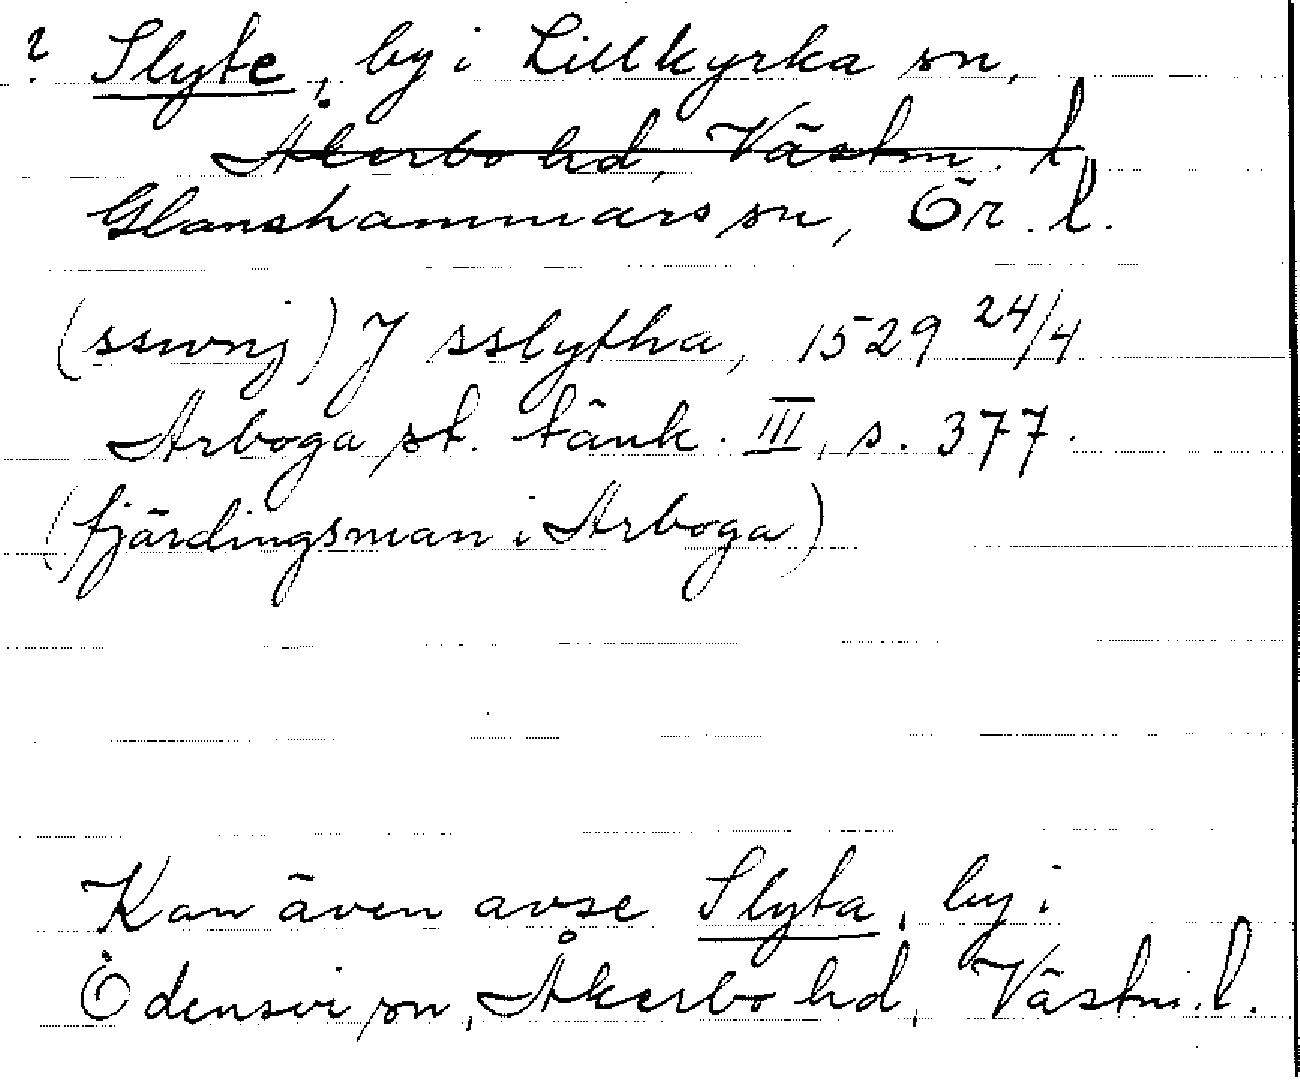 ? Slyte, by i Lillkyrka sn,
Åkerbo hd, Västm. l,
Glanshammars sn, Ör. l.
(sswnj) J sslytha, 1529 24/4
Arboga st. tänk. III, s. 377.
(fjärdingsman i Arboga)
Kan även avse Slyta, by i
Ödensvi sn, Åkerbo hd, Västm. l.